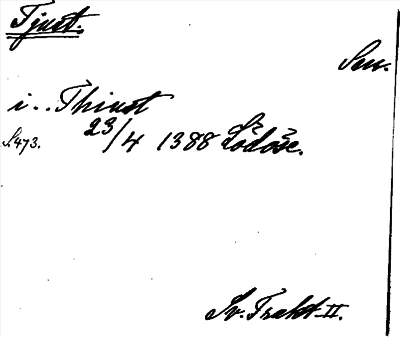 Tjust.
Sun.
i.. Thiust
S.473. 23/4 1388 Lödöse.
Sv. Trakt. II.